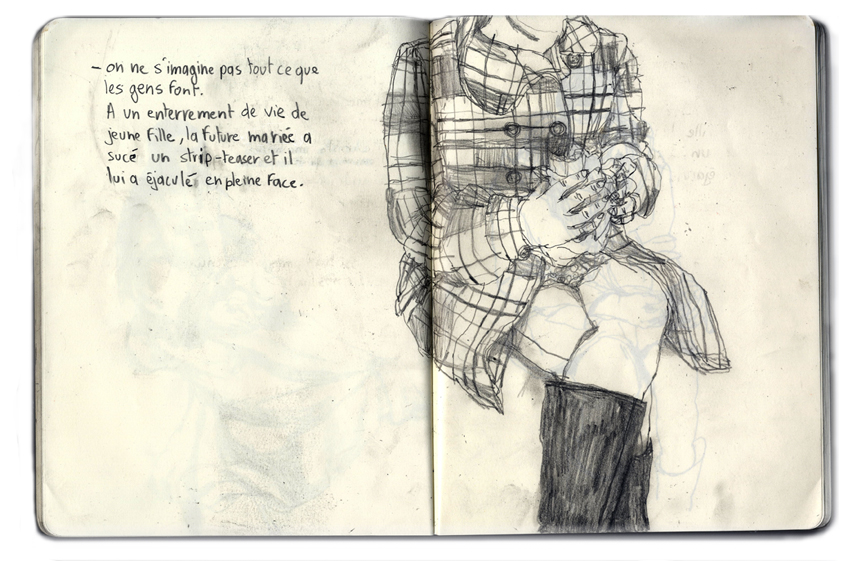 - on ne s'imagine pas tout ce que
les gens font.
A un enterrement de vie de
jeune fille, la future mariée a
sucé un strip-teaser et il
lui a éjaculé en pleine face.